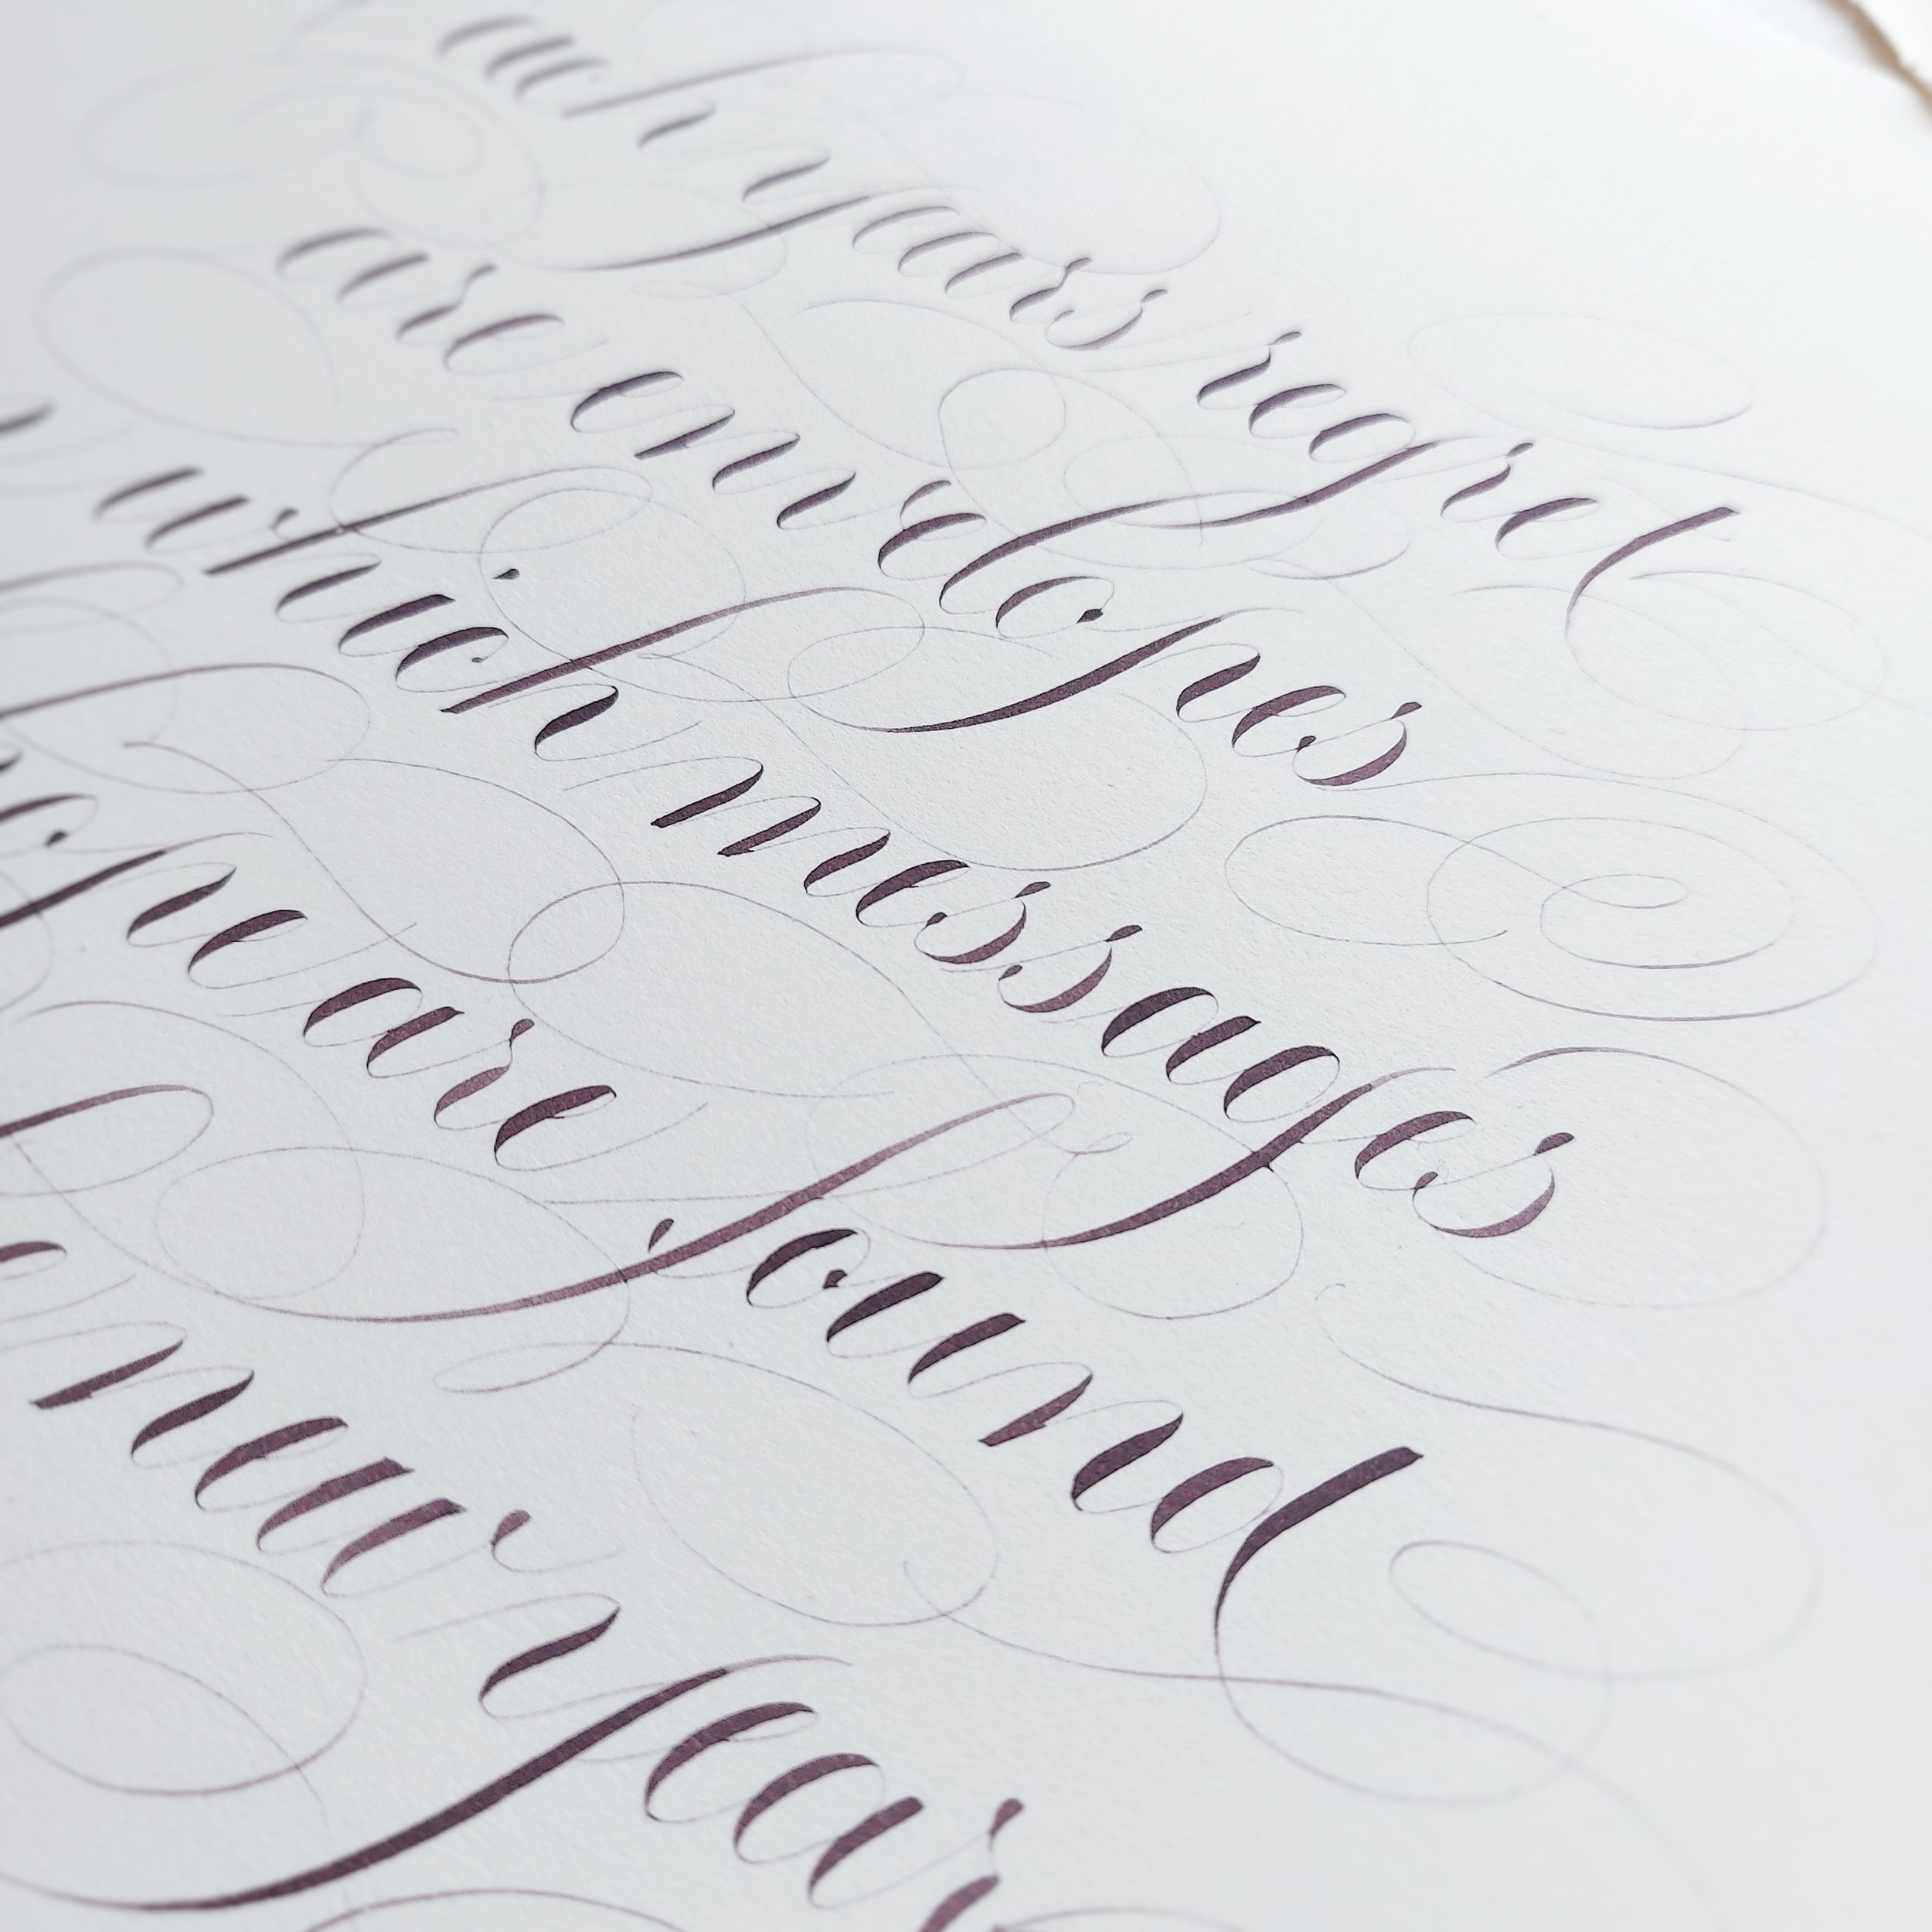 each years regret
are envelopes
which messages
ope are found
new year